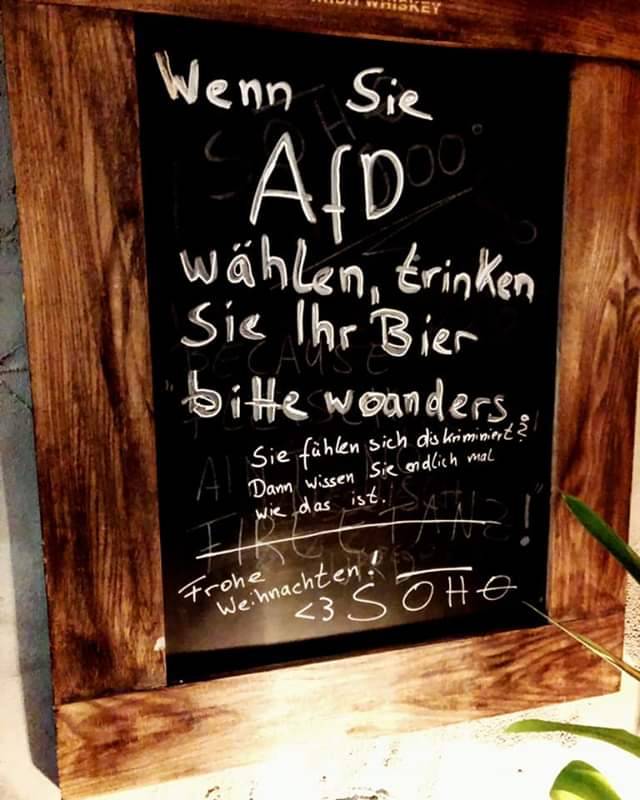 IRISH WHISKEY
Wenn Sie
AfD
wählen, trinken
Sie Ihr Bier
bitte woanders
Sie fühlen sich diskriminiert?
Dann wissen Sie endlich mal
wie das ist.
Frohe
Weihnachten!
<3 SOHO